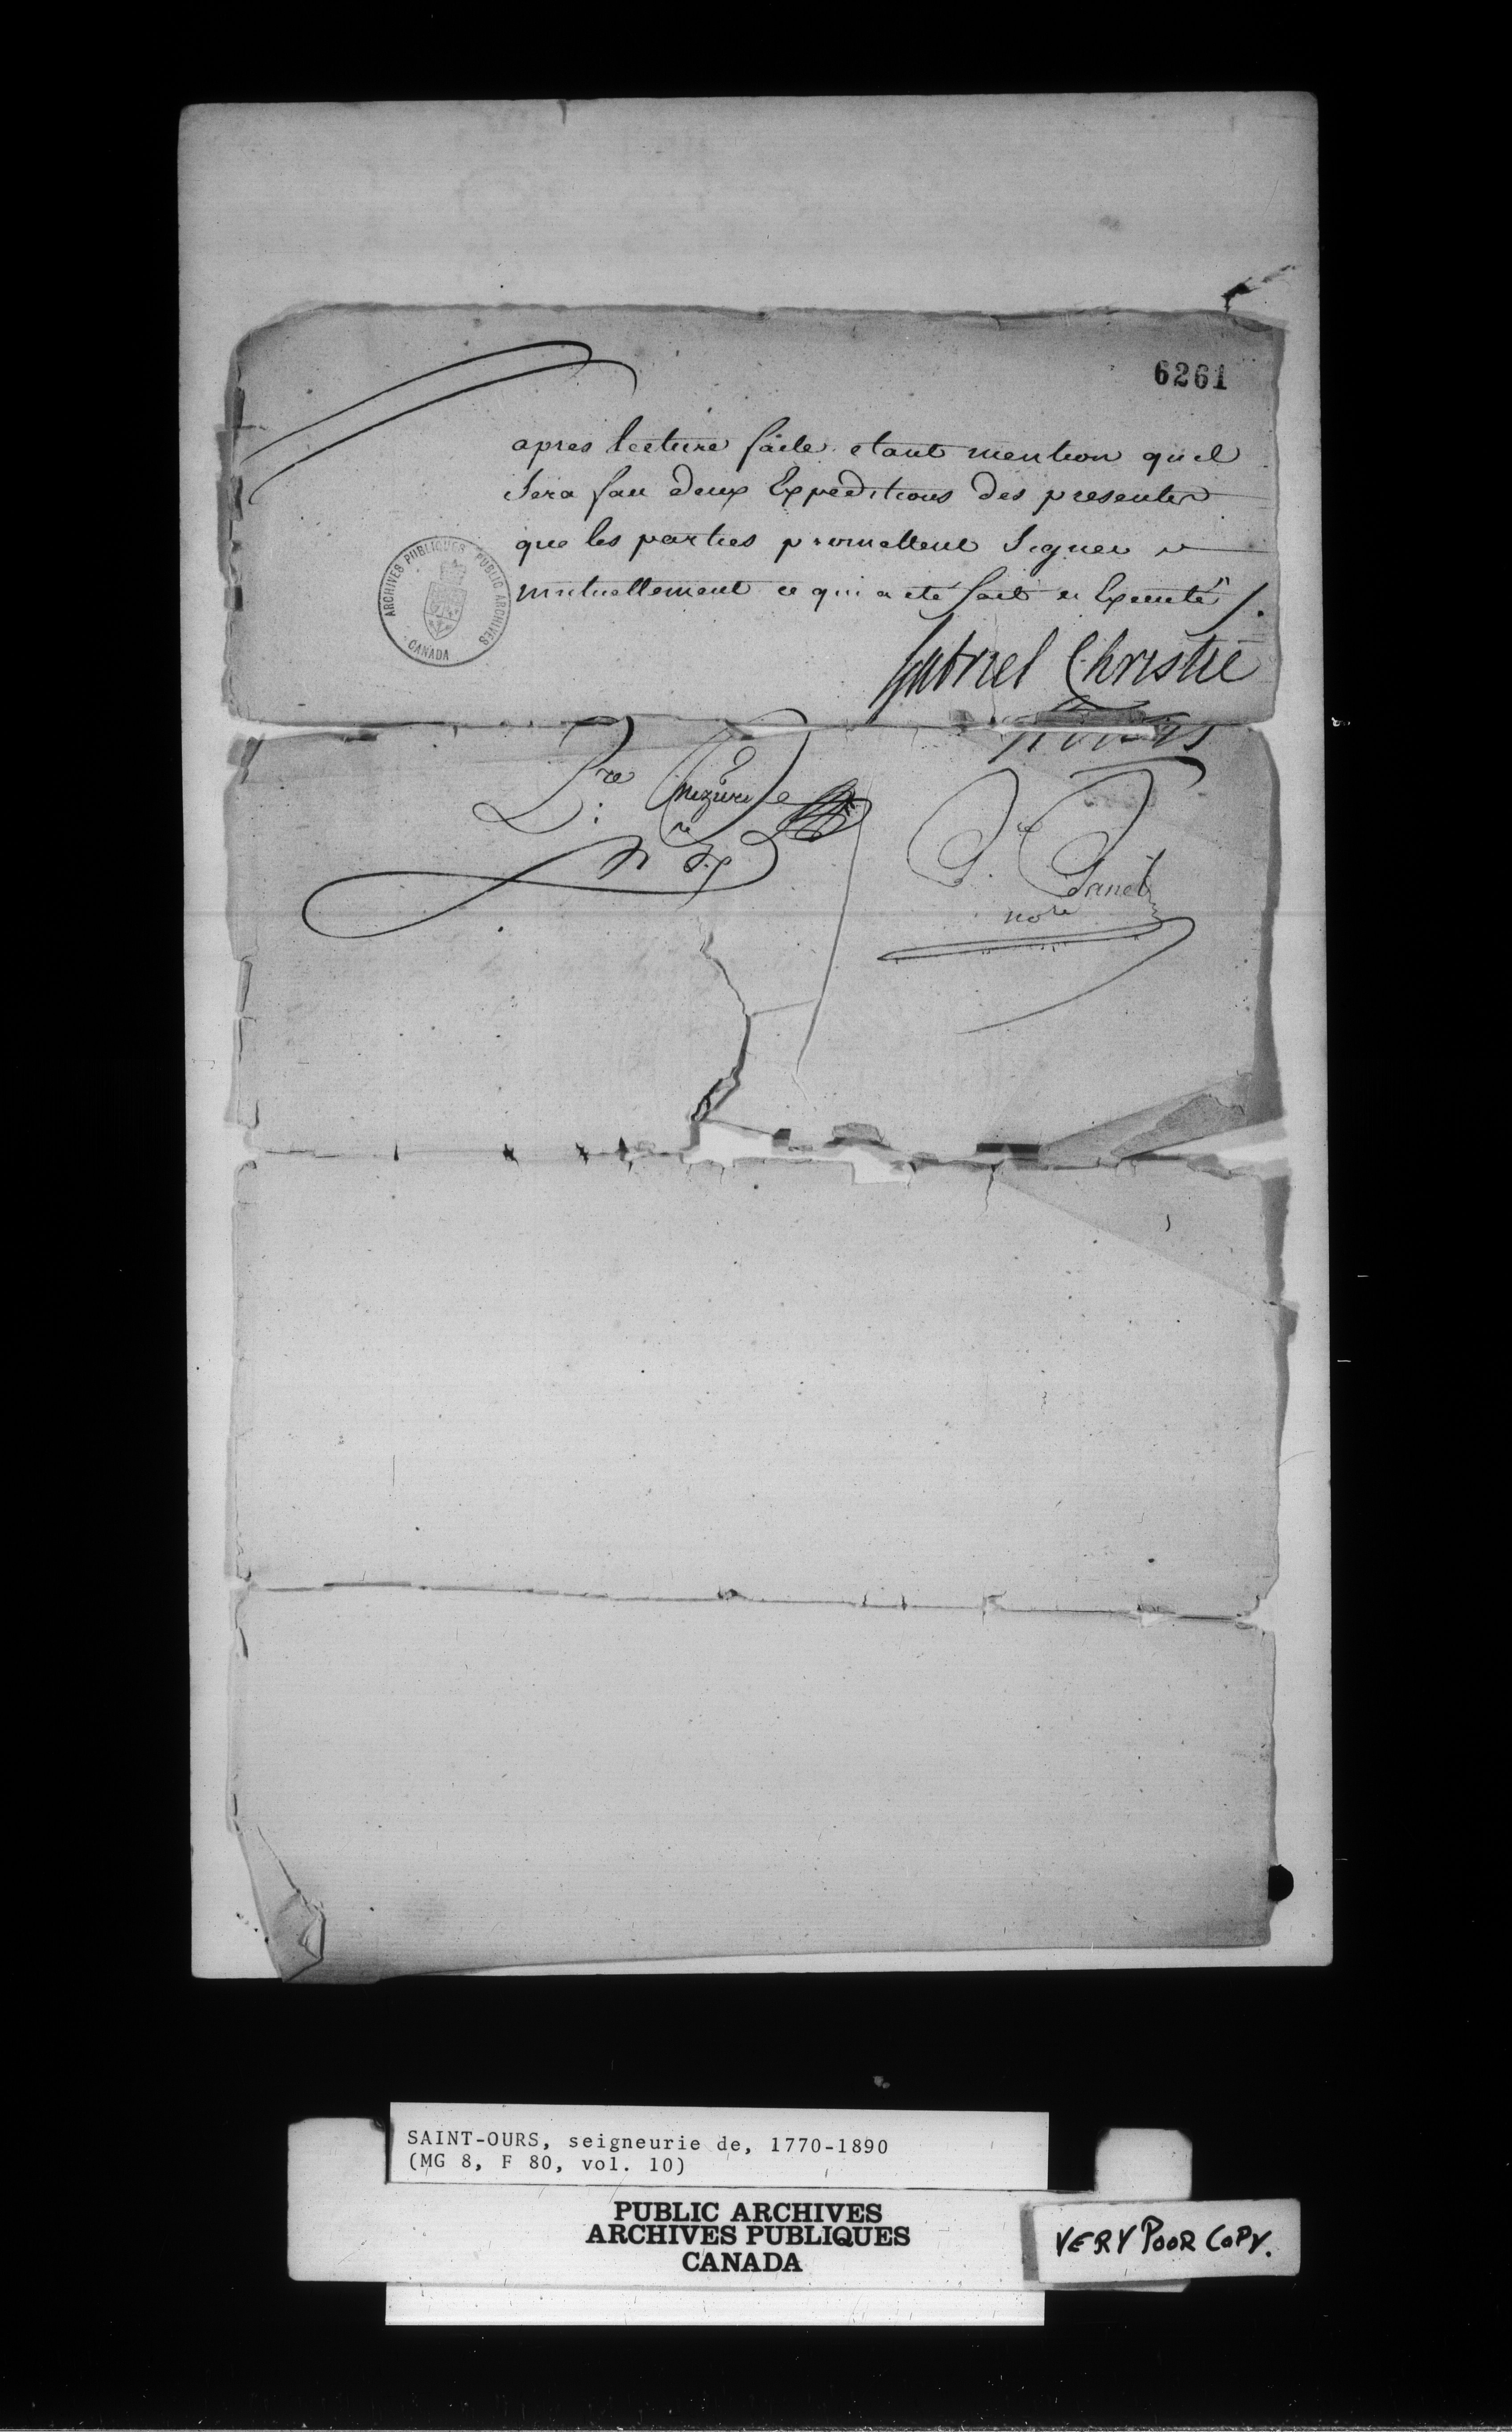 6261
apres lecture faite etant mention quil
Sera fait deux Expeditions des presentes
que les parties promettent Signer
mutuellement ce qui a ete fait et Execute /.
ARCHIVES PUBLIQUES PUBLIC ARCHIVES
CANADA
Gabriel Christie
P. Panet
nore
SAINT-OURS, seigneurie de, 1770-1890
(MG 8, F 80, vol. 10)
PUBLIC ARCHIVES
ARCHIVES PUBLIQUES
CANADA
VERY POOR COPY.